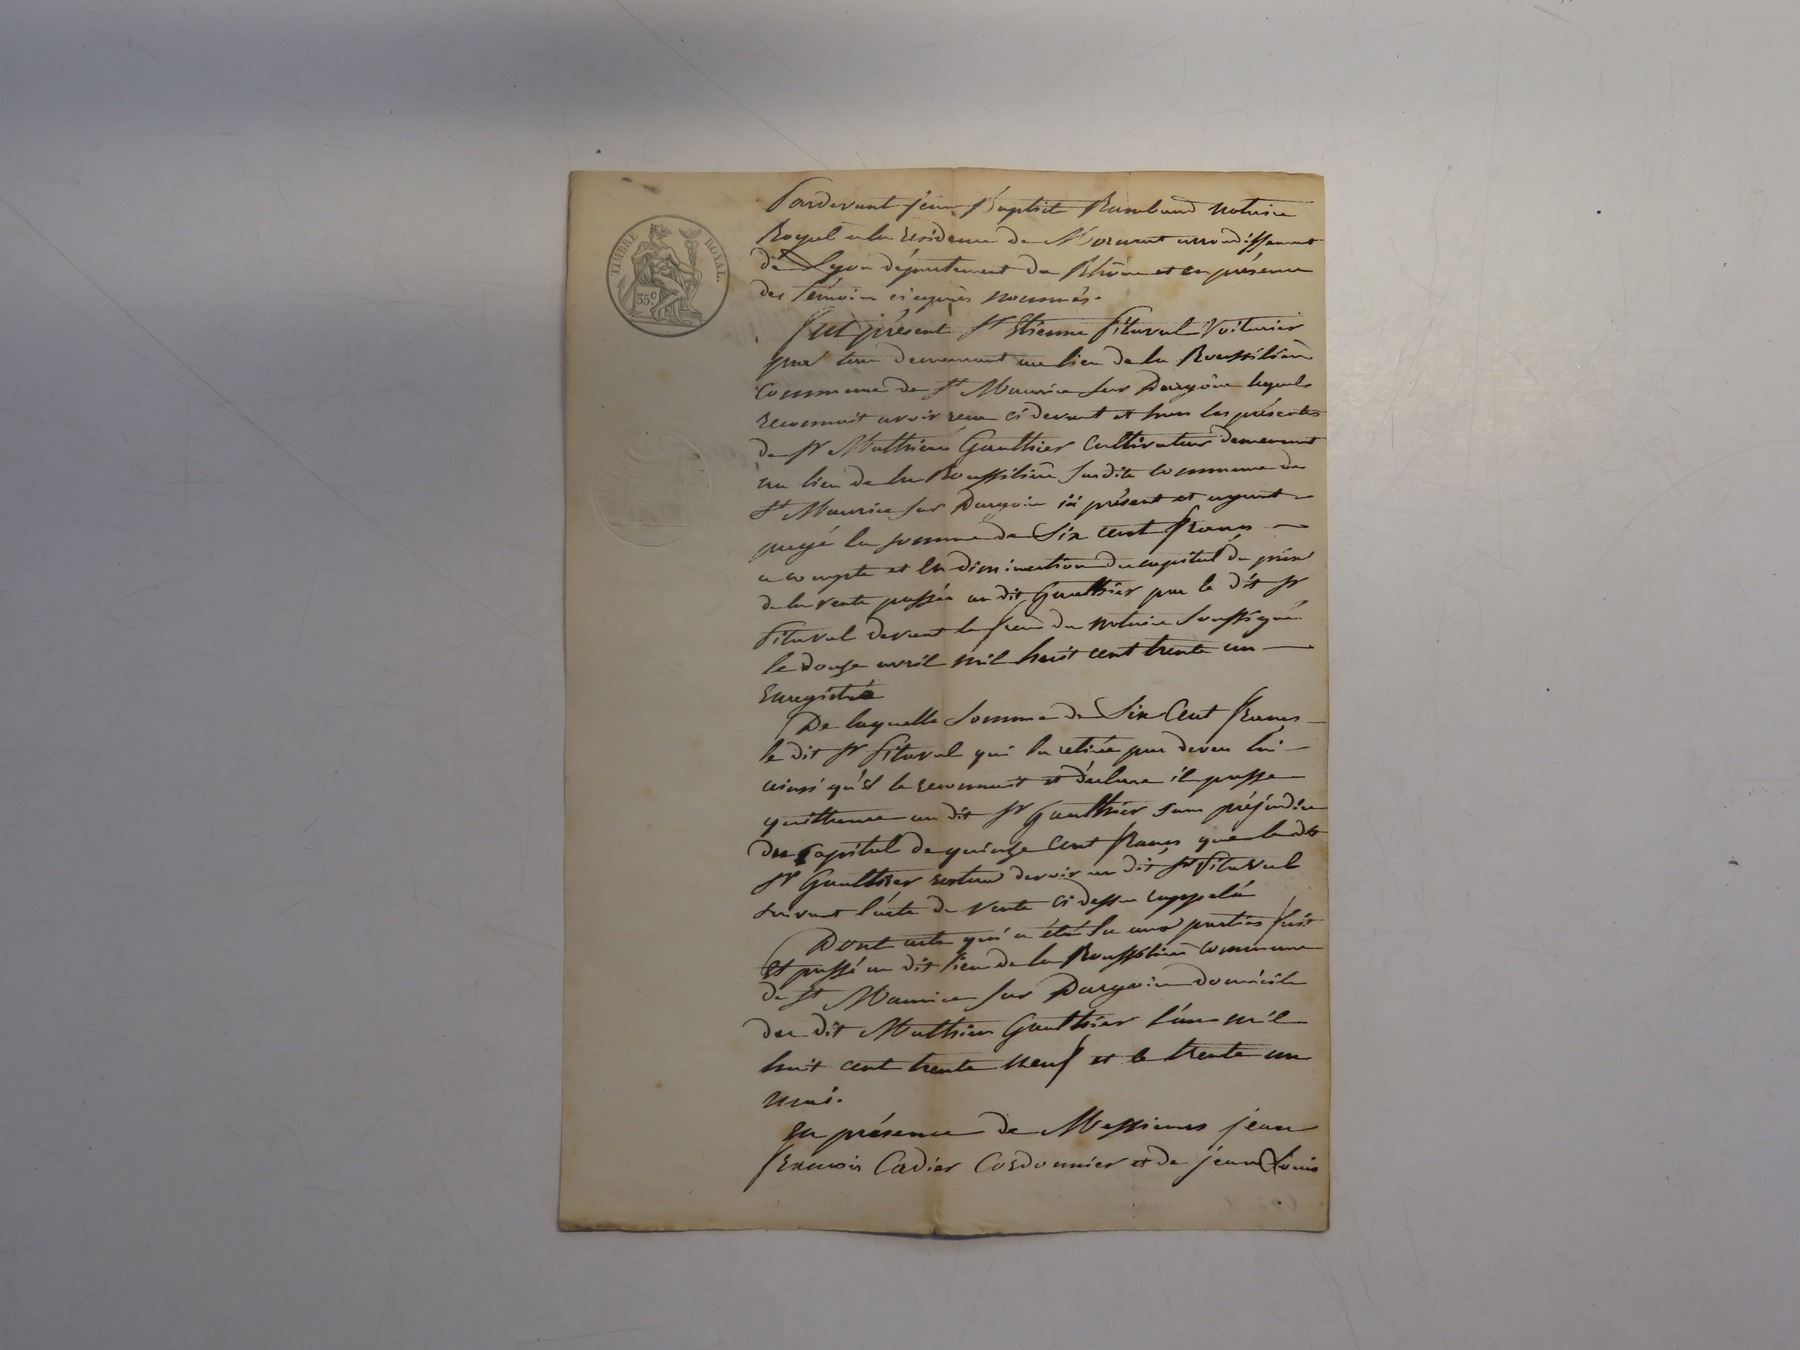 TIMBRE ROYAL.
35c
Pardevant jean Baptiste Rambaud notaire
Royal a la residence de Mornant arrondissement
de Lyon département du Rhône et en présence
des témoins ci après nommés.
Fut présent Sr Etienne Fitaval Voiturier
par terre demeurant au lieu de la Roussilière
Commune de St Maurice sur Dargoire lequel
reconnait avoir reçu ci devant et hors les présentes
de Sr Mathieu Gaulthier Cultivateur demeurant
au lieu de la Roussilière susdite commune de
St Maurice sur Dargoire ici présent et ayant
payé la somme de Six cent francs
a compte et en diminution du capital du prix
de la vente passée au dit Gaulthier par le dit Sr
Fitaval devant le frère du notaire soussigné
le douze avril mil huit cent trente un
Enregistré
De laquelle somme de Six Cent francs
le dit Sr Fitaval qui la retirée par devers lui
ainsi qu'il le reconnait et déclare il passe
quittance au dit Sr Gaulthier sans préjudice
du Capital de quinze Cent francs que le dit
Sr Gaulthier reste devoir au dit Sr Fitaval
suivant l'acte de vente ci dessus rappelé
Dont acte qui a été lu aux parties fait
et passé au dit lieu de la Roussilière commune
de St Maurice sur Dargoire domicile
du dit Mathieu Gaulthier l'an mil
huit cent trente neuf et le trente un
mai.
En présence de Messieurs jean
francois Cadier Cordonnier et de jean Louis